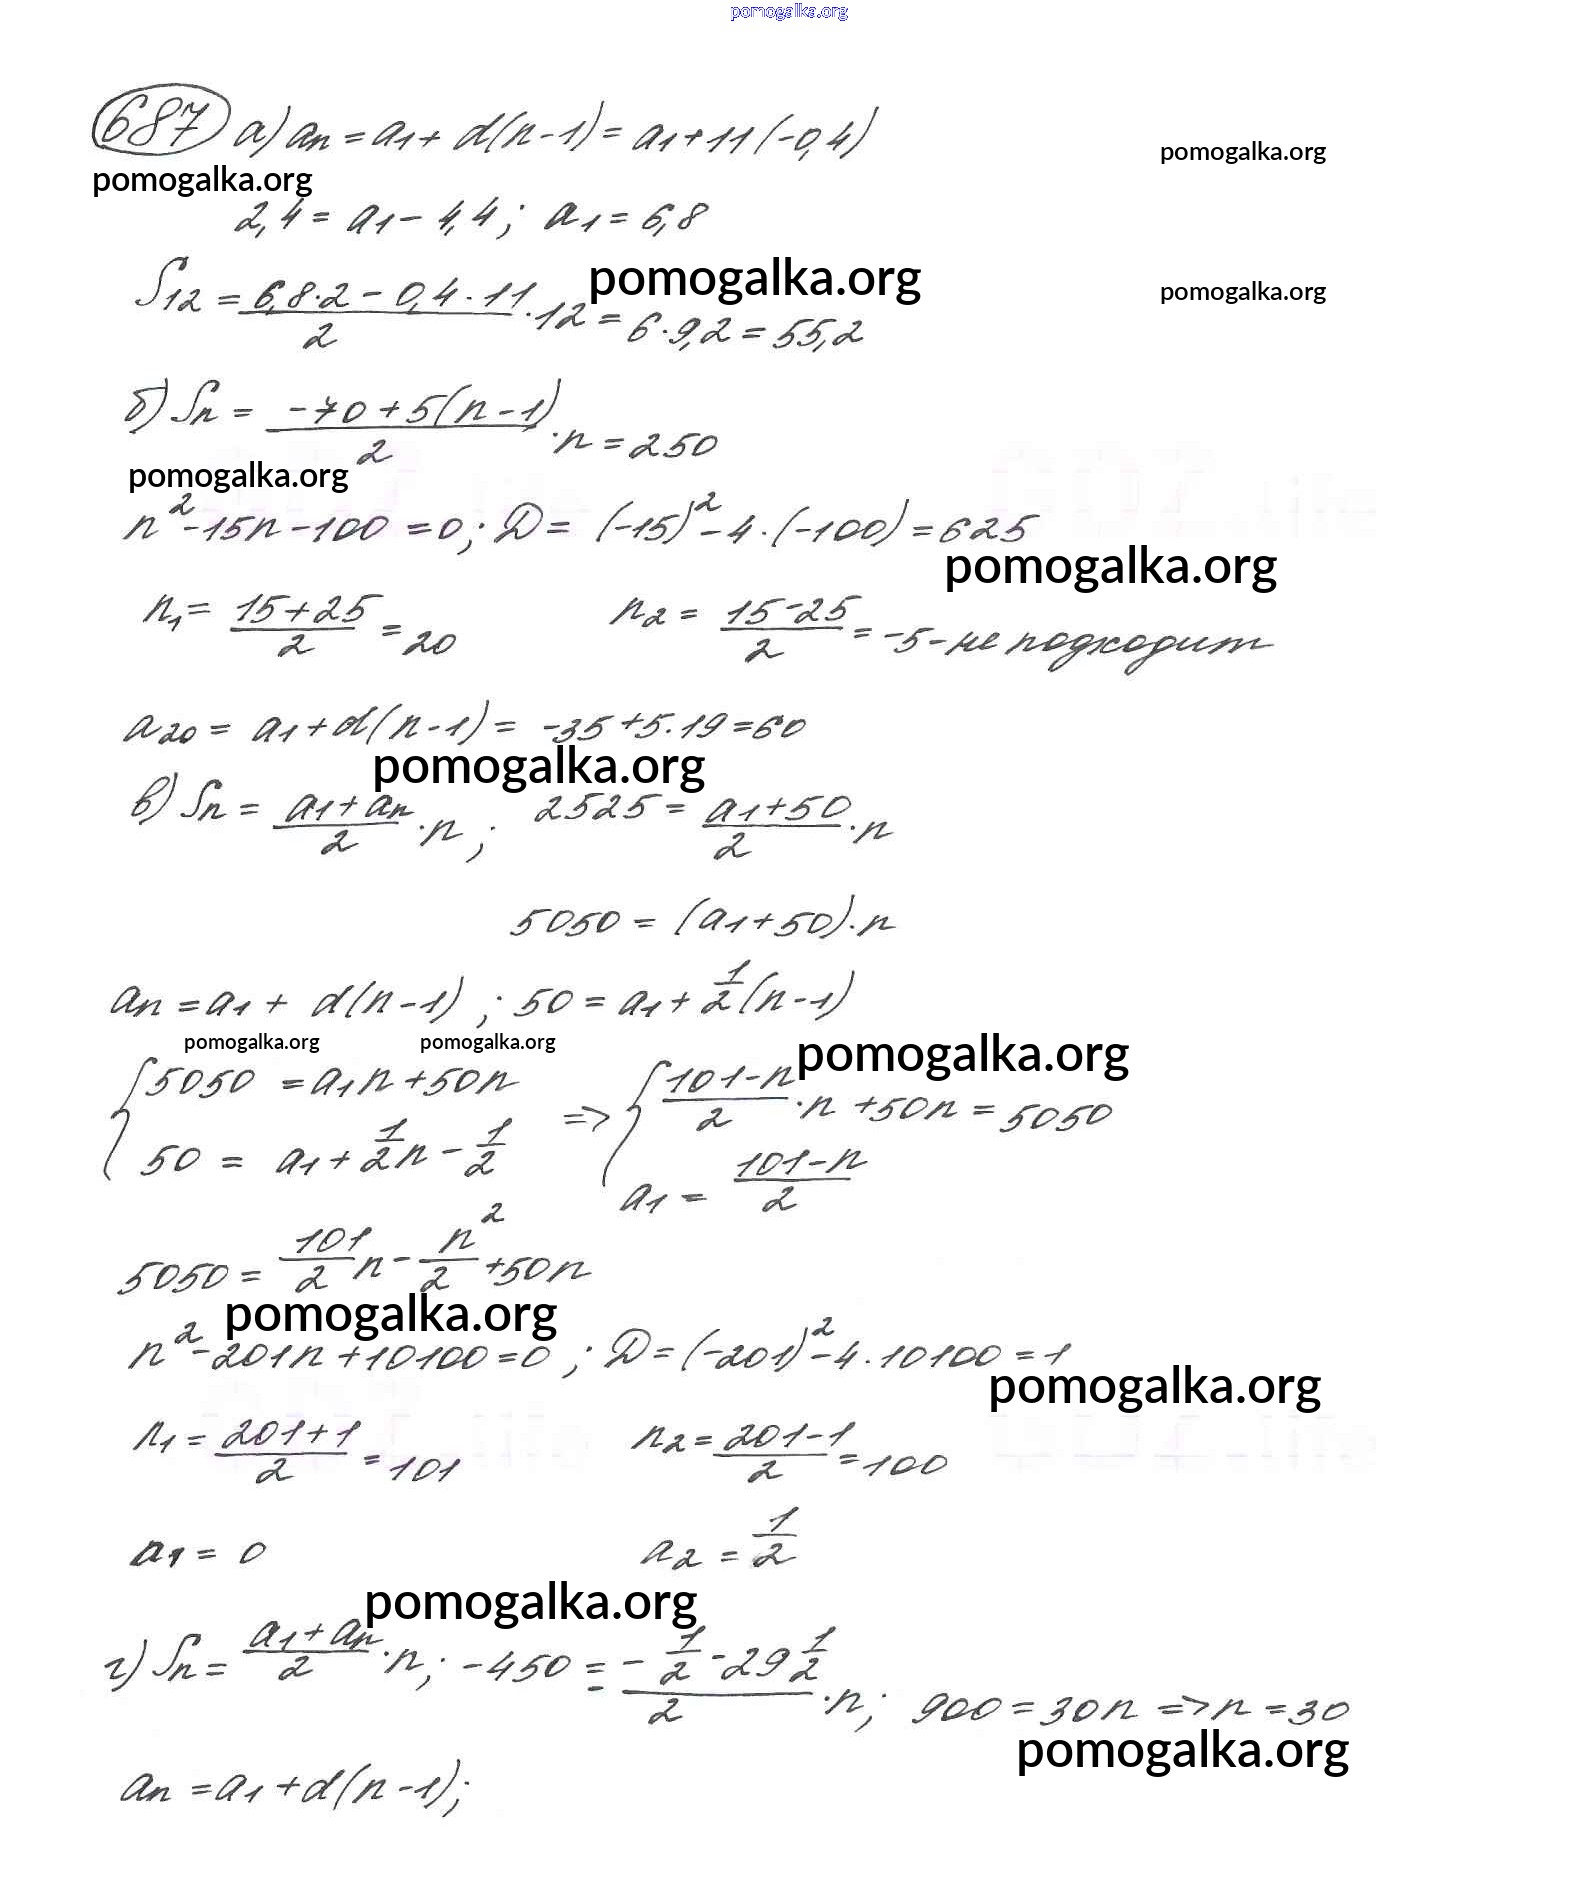 pomogalka.org
687 а) an = a1 + d(n-1) = a1 + 11(-0,4)
pomogalka.org
pomogalka.org
2,4 = a1 - 4,4; a1 = 6,8
pomogalka.org
pomogalka.org
S12 = (6,8·2 - 0,4·11)/2 · 12 = 6·9,2 = 55,2
б) Sn = (-70 + 5(n-1))/2 · n = 250
pomogalka.org
n² - 15n - 100 = 0; D = (-15)² - 4·(-100) = 625
pomogalka.org
n1 = (15+25)/2 = 20   n2 = (15-25)/2 = -5 - не подходит
a20 = a1 + d(n-1) = -35 + 5·19 = 60
pomogalka.org
в) Sn = (a1 + an)/2 · n; 2525 = (a1 + 50)/2 · n
5050 = (a1 + 50)·n
an = a1 + d(n-1); 50 = a1 + 1/2(n-1)
pomogalka.org pomogalka.org pomogalka.org
{5050 = a1n + 50n => {(101-n)/2 · n + 50n = 5050
50 = a1 + 1/2n - 1/2   a1 = (101-n)/2
5050 = 101/2 n - n²/2 + 50n
pomogalka.org
n² - 201n + 10100 = 0; D = (-201)² - 4·10100 = 1
pomogalka.org
n1 = (201+1)/2 = 101   n2 = (201-1)/2 = 100
a1 = 0   a2 = 1/2
pomogalka.org
г) Sn = (a1 + an)/2 · n; -450 = (-1/2 - 29 1/2)/2 · n; 900 = 30n => n = 30
pomogalka.org
an = a1 + d(n-1);